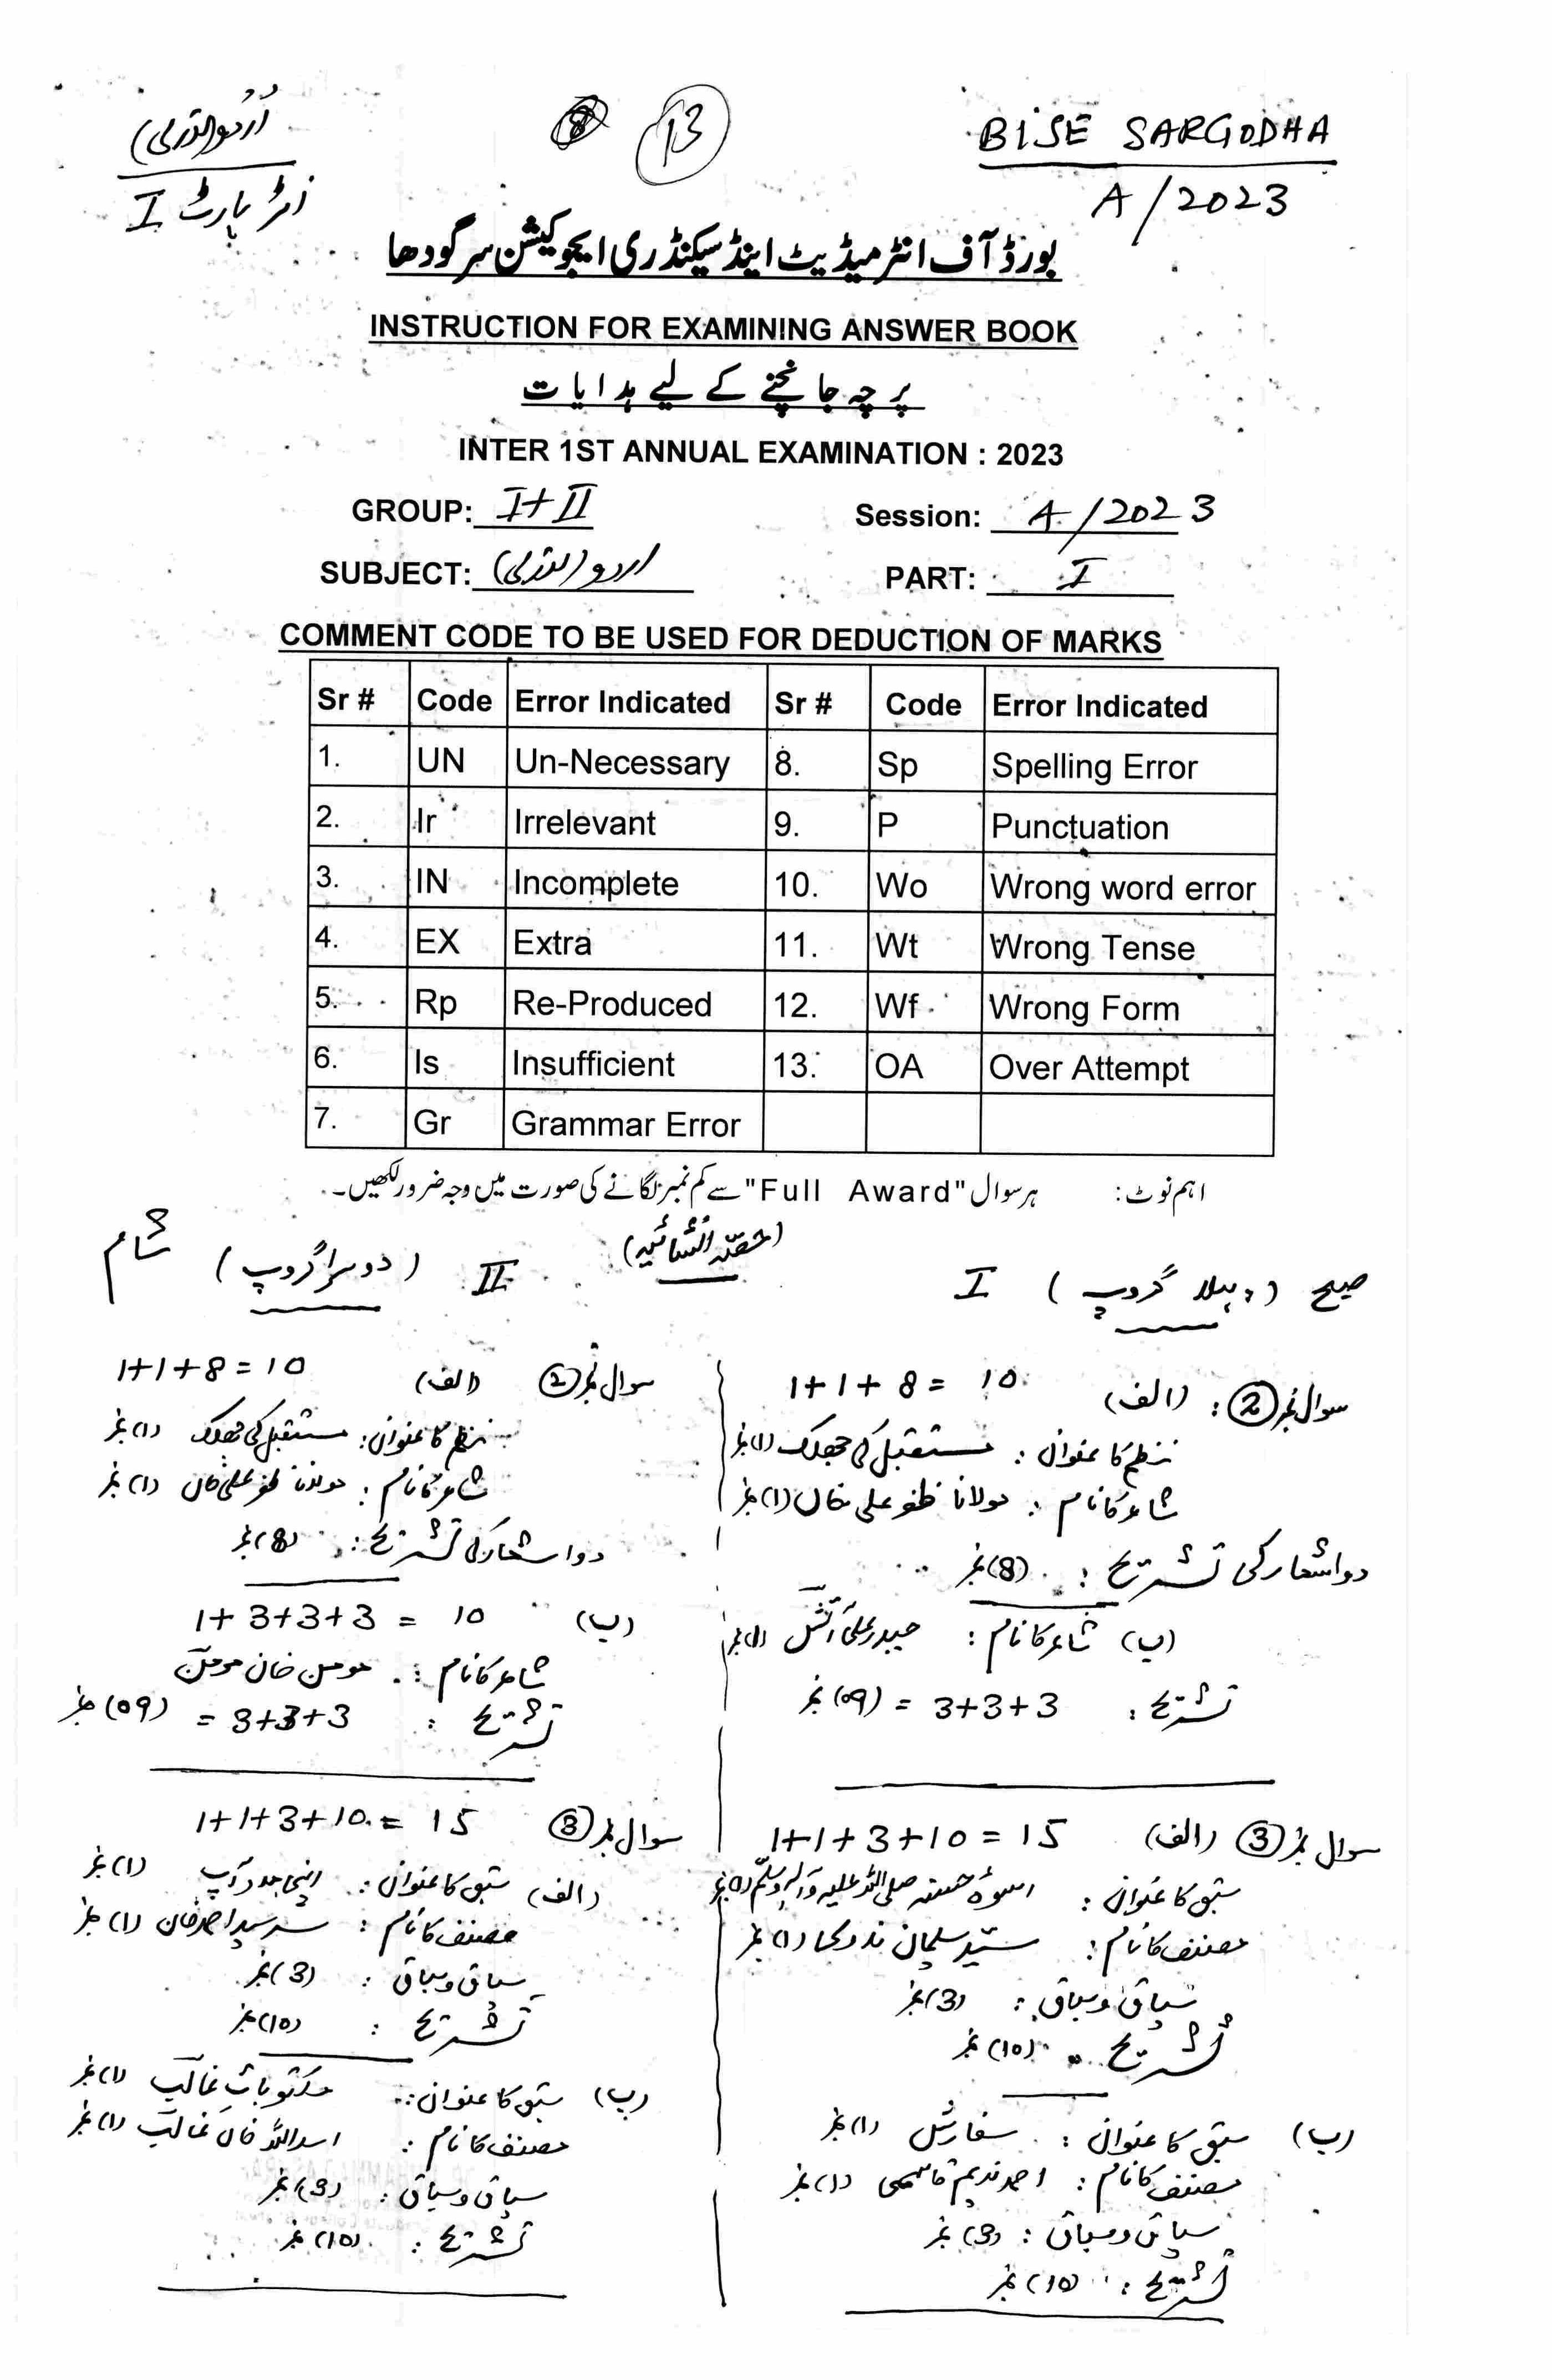 اُردو (لازمی)
انٹر پارٹ I
13
BISE SARGODHA
A/2023
بورڈ آف انٹرمیڈیٹ اینڈ سیکنڈری ایجوکیشن سرگودھا
INSTRUCTION FOR EXAMINING ANSWER BOOK
پرچہ جانچنے کے لیے ہدایات
INTER 1ST ANNUAL EXAMINATION : 2023
GROUP: I+II Session: A/2023
SUBJECT: اردو (لازمی) PART: I
COMMENT CODE TO BE USED FOR DEDUCTION OF MARKS
Sr # Code Error Indicated Sr # Code Error Indicated
1. UN Un-Necessary 8. Sp Spelling Error
2. Ir Irrelevant 9. P Punctuation
3. IN Incomplete 10. Wo Wrong word error
4. EX Extra 11. Wt Wrong Tense
5. Rp Re-Produced 12. Wf Wrong Form
6. Is Insufficient 13. OA Over Attempt
7. Gr Grammar Error
اہم نوٹ: ہر سوال "Full Award" سے کم نمبر لگانے کی صورت میں وجہ ضرور لکھیں۔
(حصّہ انشائیہ)
صبح (پہلا گروپ) I
سوال نمبر 2: (الف) 1+1+8= 10
نظم کا عنوان: مستقبل کی جھلک (1) نمبر
شاعر کا نام: مولانا ظفر علی خاں (1) نمبر
دو اشعار کی تشریح: (8) نمبر
(ب) شاعر کا نام: حیدر علی آتش (1) نمبر
تشریح: 3+3+3 = (09) نمبر
سوال نمبر 3 (الف) 1+1+3+10=15
سبق کا عنوان: اسوۂ حسنہ صلی اللہ علیہ وآلہ وسلّم (1) نمبر
مصنف کا نام: سیّد سلمان ندوی (1) نمبر
سیاق و سباق: (3) نمبر
تشریح: (10) نمبر
(ب) سبق کا عنوان: سفارش (1) نمبر
مصنف کا نام: احمد ندیم قاسمی (1) نمبر
سیاق و سباق: (3) نمبر
تشریح: (10) نمبر
شام (دوسرا گروپ) II
سوال نمبر 2 (الف) 1+1+8=10
نظم کا عنوان: مستقبل کی جھلک (1) نمبر
شاعر کا نام: مولانا ظفر علی خاں (1) نمبر
دو اشعار کی تشریح: (8) نمبر
(ب) 1+3+3+3 = 10
شاعر کا نام: مومن خان مومن
تشریح: 3+3+3 = (09) نمبر
سوال نمبر 3 1+1+3+10=15
(الف) سبق کا عنوان: اپنی مدد آپ (1) نمبر
مصنف کا نام: سر سید احمد خان (1) نمبر
سیاق و سباق: (3) نمبر
تشریح: (10) نمبر
(ب) سبق کا عنوان: مکتوباتِ غالب (1) نمبر
مصنف کا نام: اسد اللہ خاں غالب (1) نمبر
سیاق و سباق: (3) نمبر
تشریح: (10) نمبر